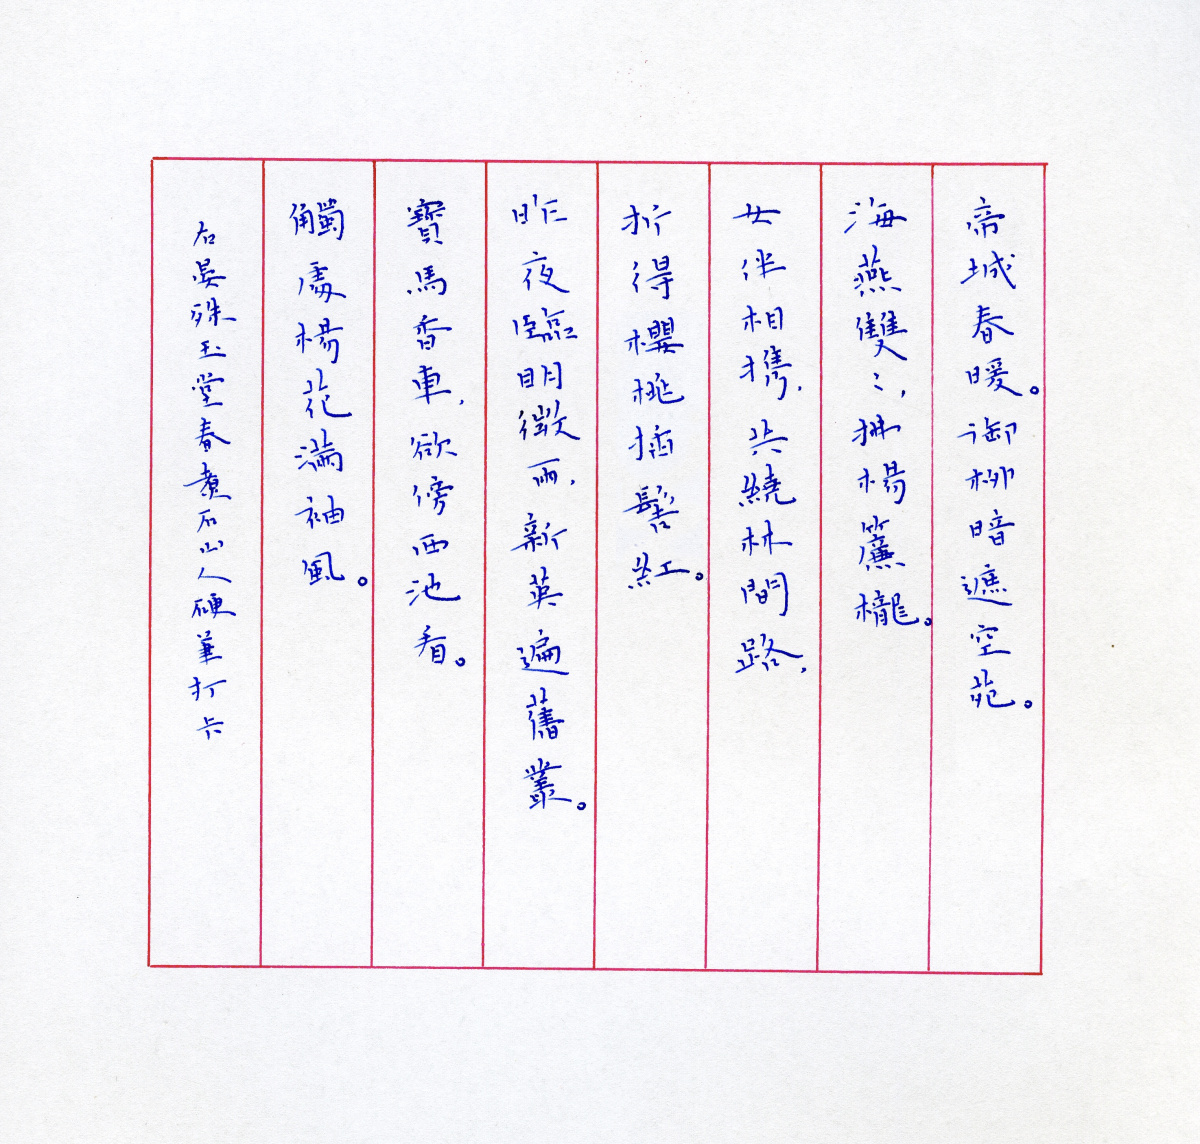 帝城春暖。御柳暗遮空苑。
海燕雙〻，拂楊簾櫳。
女伴相携，共繞林間路，
折得櫻桃插髻紅。
昨夜臨明微雨，新英遍舊叢。
寶馬香車，欲傍西池看。
觸處楊花滿袖風。
右晏殊玉堂春煮石山人硬筆打卡